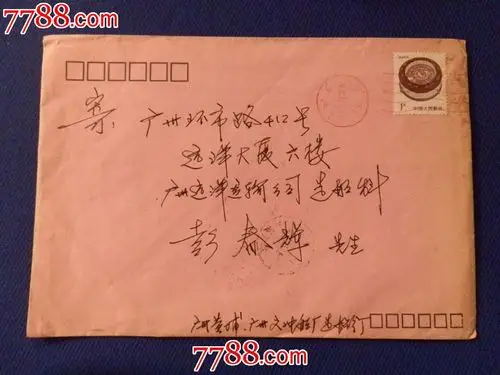 7788.com
7788.com
寄:
广州环市路412号
远洋大厦六楼
广州远洋运输公司 造船科
彭春辉 先生
广州黄埔、广州文冲船厂
7788.com
7788.com